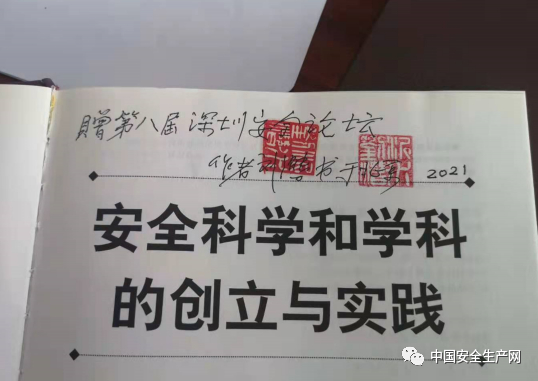 贈第八届深圳安全论坛
作者 书于北京 2021
安全科学和学科
的创立与实践
中国安全生产网